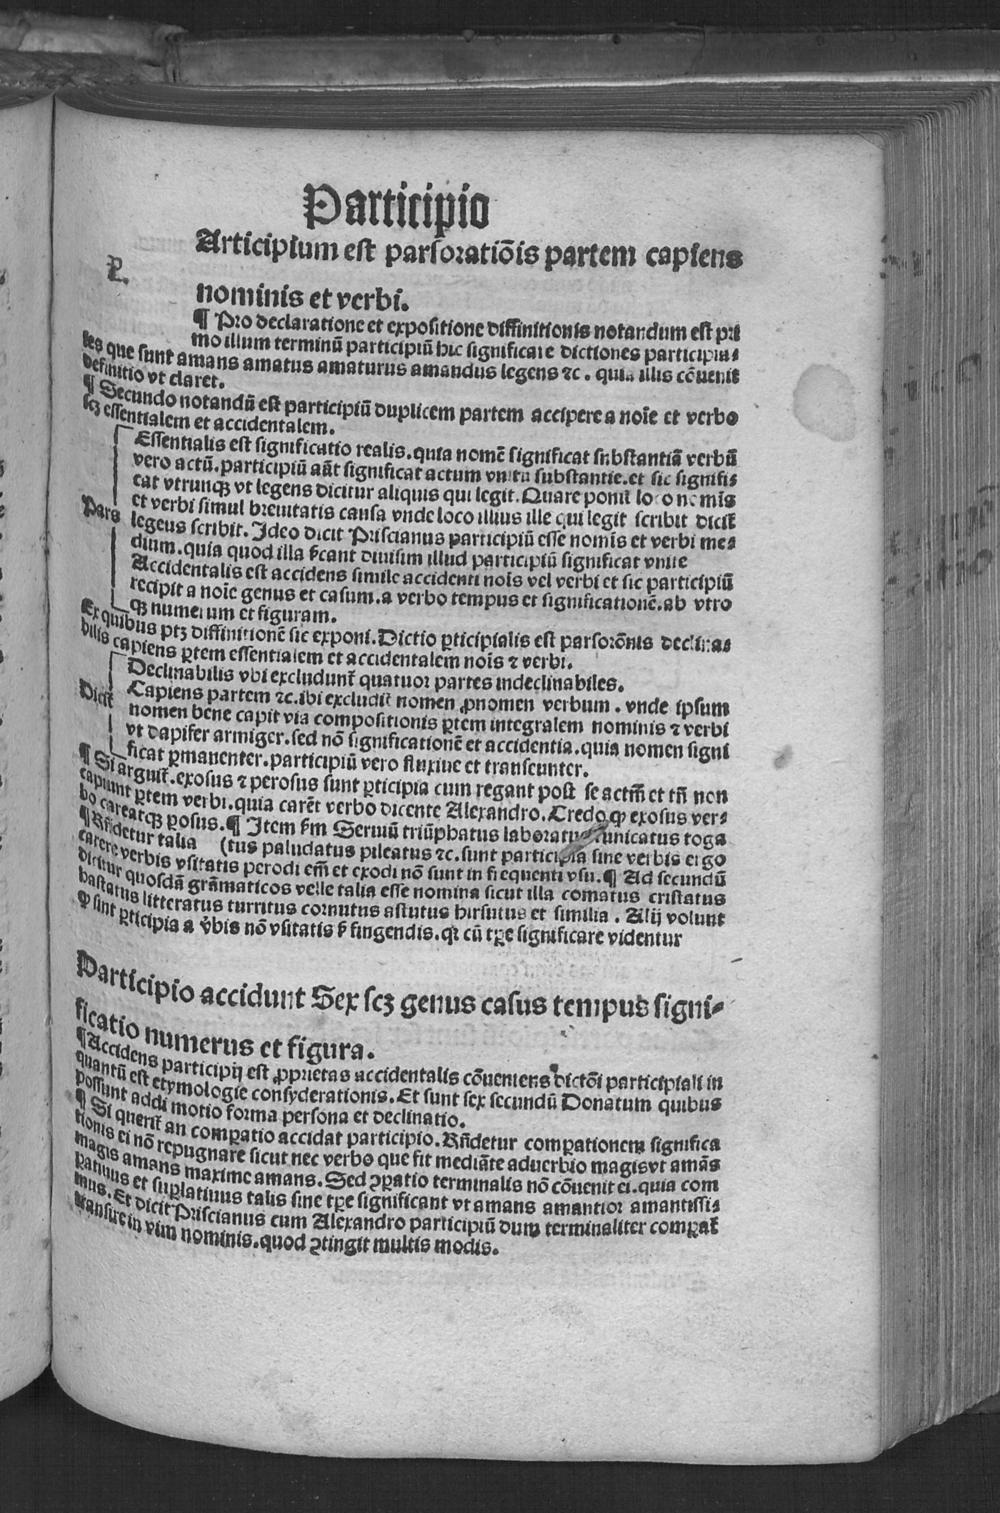 Participio
p. Articipium est pars orationis partem capiens
nominis et verbi.
¶ Pro declaratione et expositione diffinitionis notandum est pri
mo illum terminū participiū hic significare dictiones participia-
les que sunt amans amatus amaturus amandus legens ⁊c. quia illis cōuenit
definitio vt claret.
¶ Secundo notandū est participiū duplicem partem accipere a noīe et verbo
scꝫ essentialem et accidentalem.
Essentialis est significatio realis. quia nomē significat substantiā verbū
vero actū. participiū aūt significat actum vnitū substantie. et sic signifi-
cat vtrunqꝫ vt legens dicitur aliquis qui legit. Quare ponit̄ loco nomīs
et verbi simul breuitatis causa vnde loco illius ille qui legit scribit dicit̄
Pars legens scribit. Ideo dicit Priscianus participiū esse nomīs et verbi me-
dium. quia quod illa sīcant diuisim illud participiū significat vnite
Accidentalis est accidens simile accidenti noīs vel verbi et sic participiū
recipit a noīe genus et casum. a verbo tempus et significationē. ab vtro
qꝫ numerum et figuram.
Ex quibus ptꝫ diffinitionē sic exponi. Dictio ꝑticipialis est pars orōnis declina-
bilis capiens ꝑtem essentialem et accidentalem noīs ⁊ verbi.
Declinabilis vbi excludunt̄ quatuor partes indeclinabiles.
Dicit̄ Capiens partem ⁊c. ibi excludit̄ nomen ꝓnomen verbum. vnde ipsum
nomen bene capit via compositionis ꝑtem integralem nominis ⁊ verbi
vt dapifer armiger. sed nō significationē et accidentia. quia nomen signi
ficat ꝑmanenter. participiū vero fluxiue et transeunter.
¶ Si arguit̄. exosus ⁊ perosus sunt ꝑticipia cum regant post se actm̄ et tn̄ non
capiunt ꝑtem verbi. quia carēt verbo dicente Alexandro. Credo ꝙ exosus ver-
bo careatqꝫ ꝑosus. ¶ Item sm̄ Seruiū triūphatus laboratus tunicatus toga
¶ Rn̄detur talia (tus paludatus pileatus ⁊c. sunt participia sine verbis ergo
carere verbis vsitatis perodi em̄ et exodi nō sunt in frequenti vsu. ¶ Ad secundū
dicitur quosdā grāmaticos velle talia esse nomina sicut illa comatus cristatus
hastatus litteratus turritus cornutus astutus hirsutus et similia. Alij volunt
ꝙ sint ꝑticipia a v̄bis nō vsitatis s̄ fingendis. qꝛ cū tꝑe significare videntur
Participio accidunt Sex scꝫ genus casus tempus signi-
ficatio numerus et figura.
¶ Accidens participij est ꝓprietas accidentalis cōueniens dictōi participiali in
quantū est etymologie consyderationis. Et sunt sex secundū Donatum quibus
possunt addi motio forma persona et declinatio.
¶ Si querit̄ an comꝑatio accidat participio. Rn̄detur comꝑationem significa
tionis ei nō repugnare sicut nec verbo que fit mediāte aduerbio magis vt amās
magis amans maxime amans. Sed ꝯꝑatio terminalis nō cōuenit ei. quia com
ꝑatiuus et suꝑlatiuus talis sine tꝑe significant vt amans amantior amantissi-
mus. Et dicit Priscianus cum Alexandro participiū dum terminaliter comꝑat̄
transire in vim nominis. quod ꝯtingit multis modis.